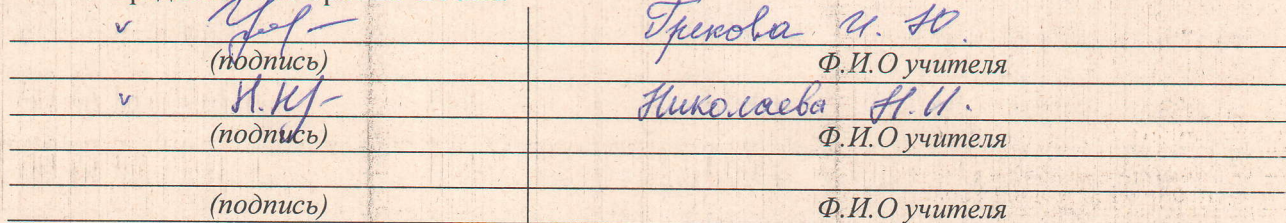 v Грекова И. Ю.
(подпись) Ф.И.О учителя
v Н.Н Николаева Н.И.
(подпись) Ф.И.О учителя
(подпись) Ф.И.О учителя